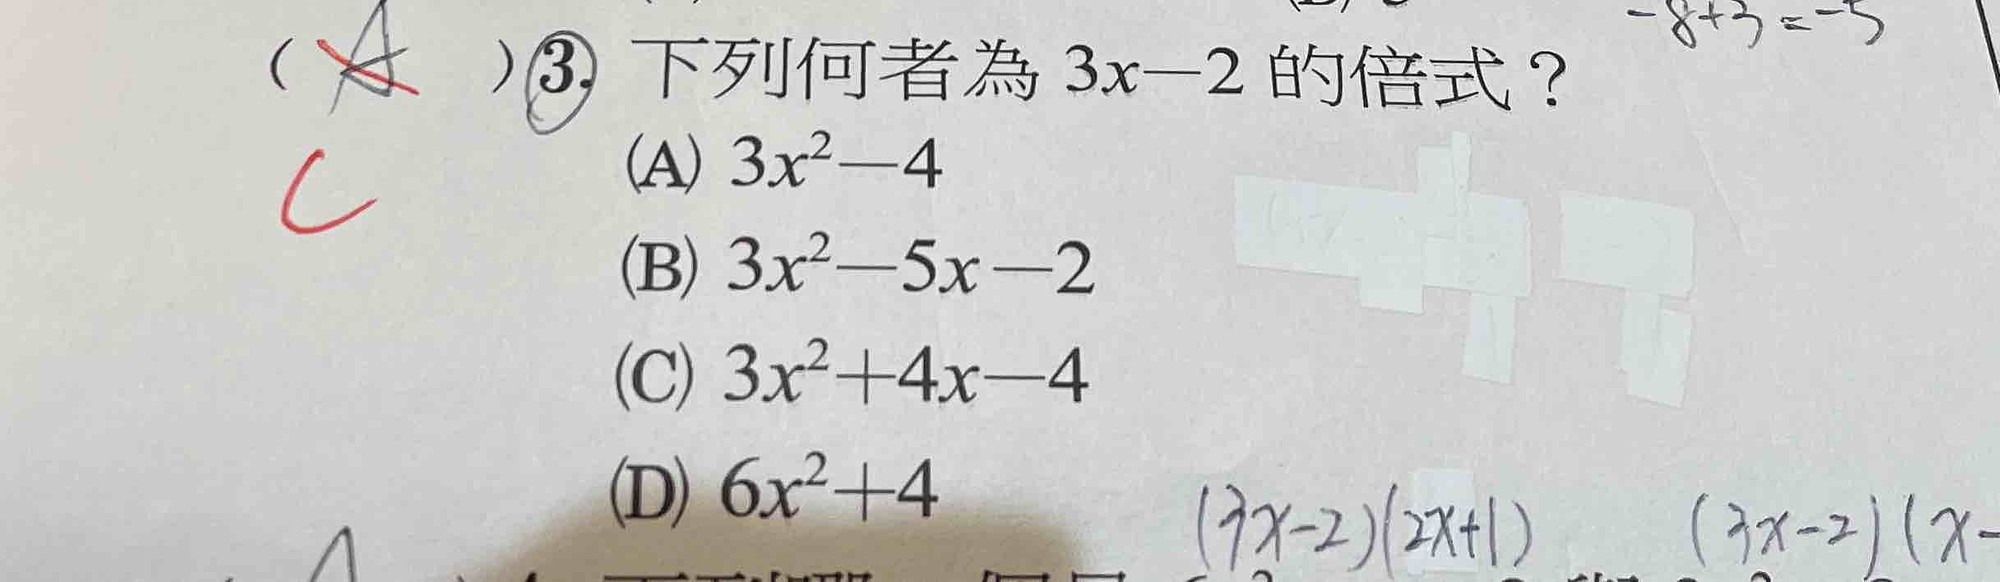 -8+3=-5
( A ) 3. 下列何者為 3x－2 的倍式？
C
(A) 3x²－4
(B) 3x²－5x－2
(C) 3x²＋4x－4
(D) 6x²＋4
(3x-2)(2x+1) (3x-2)(x-